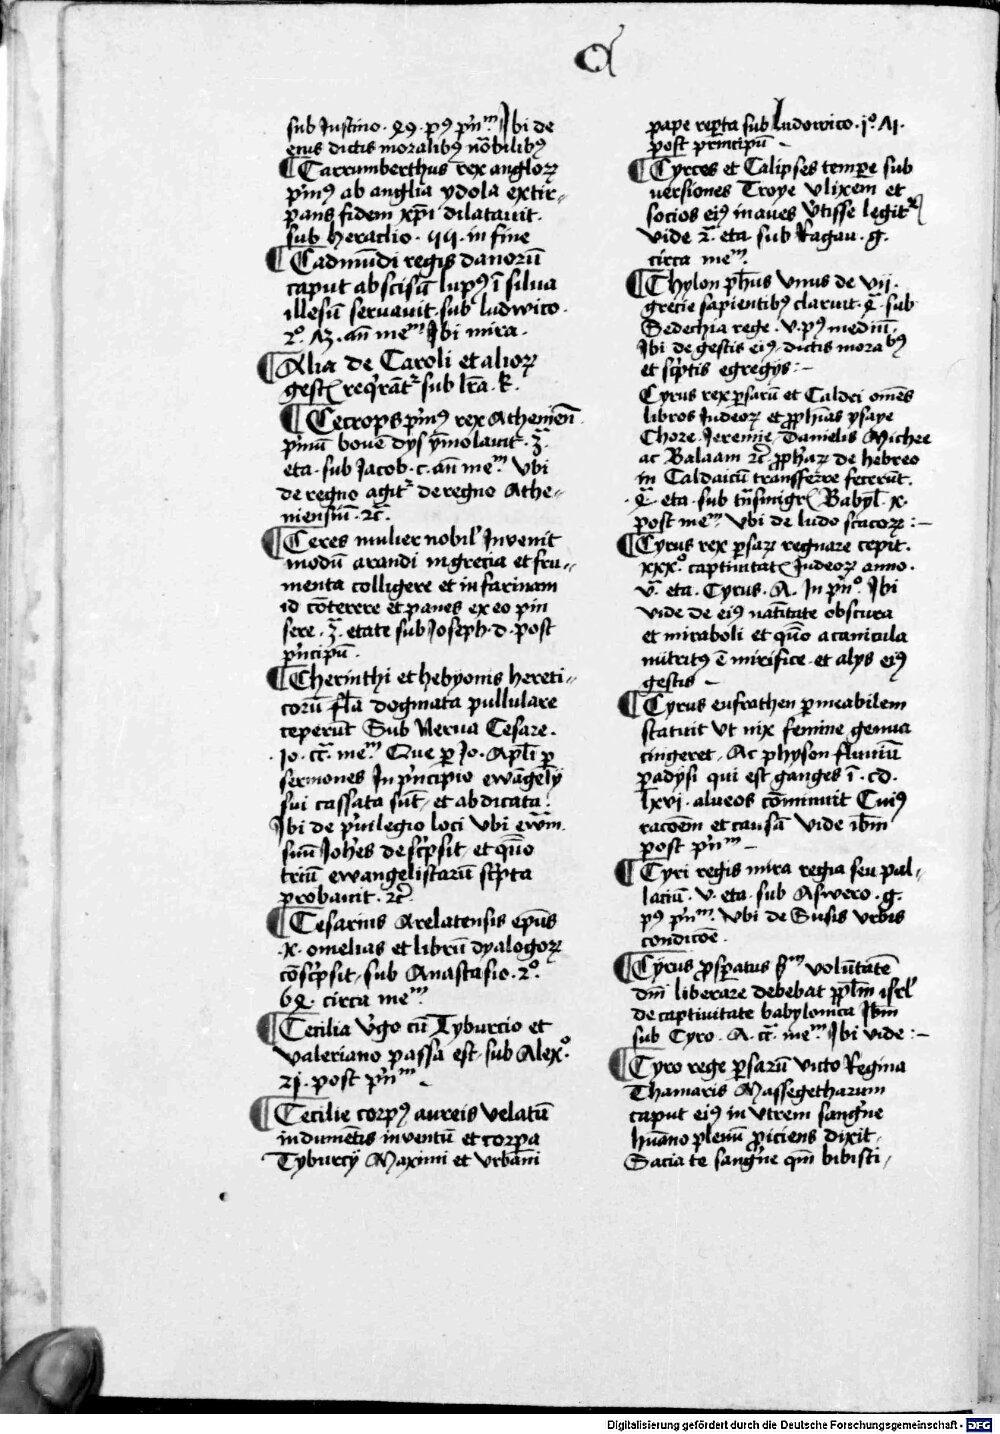 a
sub Justino · 49 · pꝰ prīᵐ Ibi de
eius dictis moralibꝰ nōbilibꝰ
¶ Carrumberthus rex angloꝝ
pr̄mꝰ ab anglia ydola extir-
pans fidem xp̄i dilatauit.
sub heraclio · 44 · in fine
¶ Cadmūdi regis danorū
caput abscisū lupꝰ ī silua
illesū seruauit · sub ludwico ·
2º · A3 · an̄ meᵐ Ibi mira ·
¶ Alia de Caroli et alioꝝ
gestꝭ reqͥrāt sub lr̄a · k ·
¶ Cecrops pͥmꝰ rex Atheniēn
pͥmū bouē dys ymolauit · 3ᵃ
eta · sub Jacob · c · an̄ meᵐ Vbi
de regno agitʳ de regno Athe-
niensiū · 2c̄ ·
¶ Ceres mulier nobilʼ Inuenit
modū arandi in grecia et fru-
menta colligere et in farinam
id cōterere et panes ex eo pin
sere · 3ᵃ · etate sub Joseph · d · post
pͥncipū ·
¶ Cherinthi et hebyonis hereti-
corū fl̄a dogmata pullulare
ceperūt Sub Nerua Cesare ·
· Jo · cc̄ᵃ meᵐ Que ꝑ Jo · Apl̄i ꝑ
sermones In pͥncipio ewāgelij
sui cassata sūt · et abdicata ·
Ibi de pͥuilegio loci vbi ewᵐ
suū Joh̄es descͥpsit · et quō
triū ewangelistarū scͥpta
probauit · 2c̄
¶ Cesarius Arelatensis ep̄us
· x · omelias et librū dyalogoꝝ
cōscͥpsit · sub Anastasio · 2º ·
64 · circa meᵐ
¶ Cecilia vͥgo cū Tyburcio et
valeriano passa est · sub Alexº ·
2j · post pͥnᵐ ·
¶ Cecilie corpꝰ aureis velatū
indumētis inuentū et corpa
Tyburcij Maximi et vrbani
pape reꝑta sub Ludowico · jº · Aj ·
post principū -
¶ Cyrces et Calipses tempe sub
uersiones Troye Vlixem et
socios eiꝰ in aues v̄tisse legitʳ
vide 2ᵃ · eta · sub Ragau · g ·
circa meᵐ
¶ Chylon ph̄us vnus de vij ·
grecie sapientibꝰ claruit · 4ᵃ · sub
Sedechia rege · v · pꝰ mediū ·
Ibi de gestis eiꝰ · dictis moraᵇꝰ
et scͥptis egregijs : -
Cyrus rex ꝑsarū et Caldei om̄es
libros Iudeoꝝ et ꝓph̄ias ysaye
Chore · Jeremie, Danielis Michee
ac Balaam 2c̄ ꝓph̄aꝝ de hebreo
in Caldaicū transferre fecerūt ·
· 4ᵃ · eta · sub tn̄smigrͦ Babyl̄ · x ·
post meᵐ Vbi de ludo scacoꝝ : -
¶ Cyrus rex ꝑsaꝝ regnare cepit ·
xxxº captiuitatꝭ Iudeoꝝ anno ·
vᵃ · eta · Cyrus · A · In pͥnº · Ibi
vide de eiꝰ natītate obscura
et mirabili et quō a canicula
nutritꝰ ē mirifice · et alijs eiꝰ
gestis -
¶ Cyrus eufrathen ꝑmeabilem
statuit vt vix femine genua
cingeret · Ac physon fluuiū
ꝑadysi qui est ganges ī · cd ·
lxvj · alueos cōminuit Cuiꝰ
racōem et causā vide ibm̄
post pͥnᵐ -
¶ Cyri regis mira regia seu pal-
laciū · v · eta · sub Aswero · g ·
pꝰ pͥnᵐ · Vbi de Susis vrbis
condicōe ·
¶ Cyrus ꝓsꝑatus sᵐ volūtatē
dn̄i liberare debebat ꝓplm̄ isrlʼ
de captiuitate babylonica Ibm̄
sub Cyro · A · cc̄ᵃ · meᵐ Ibi vide : -
¶ Cyro rege ꝑsarū victo Regina
Thamaris Massegetharum
caput eiꝰ in vtrem sangͥne
hūano plenū ꝓiciens dixit ·
Sacia te sangͥne qm̄ bibisti,
Digitalisierung gefördert durch die Deutsche Forschungsgemeinschaft - DFG